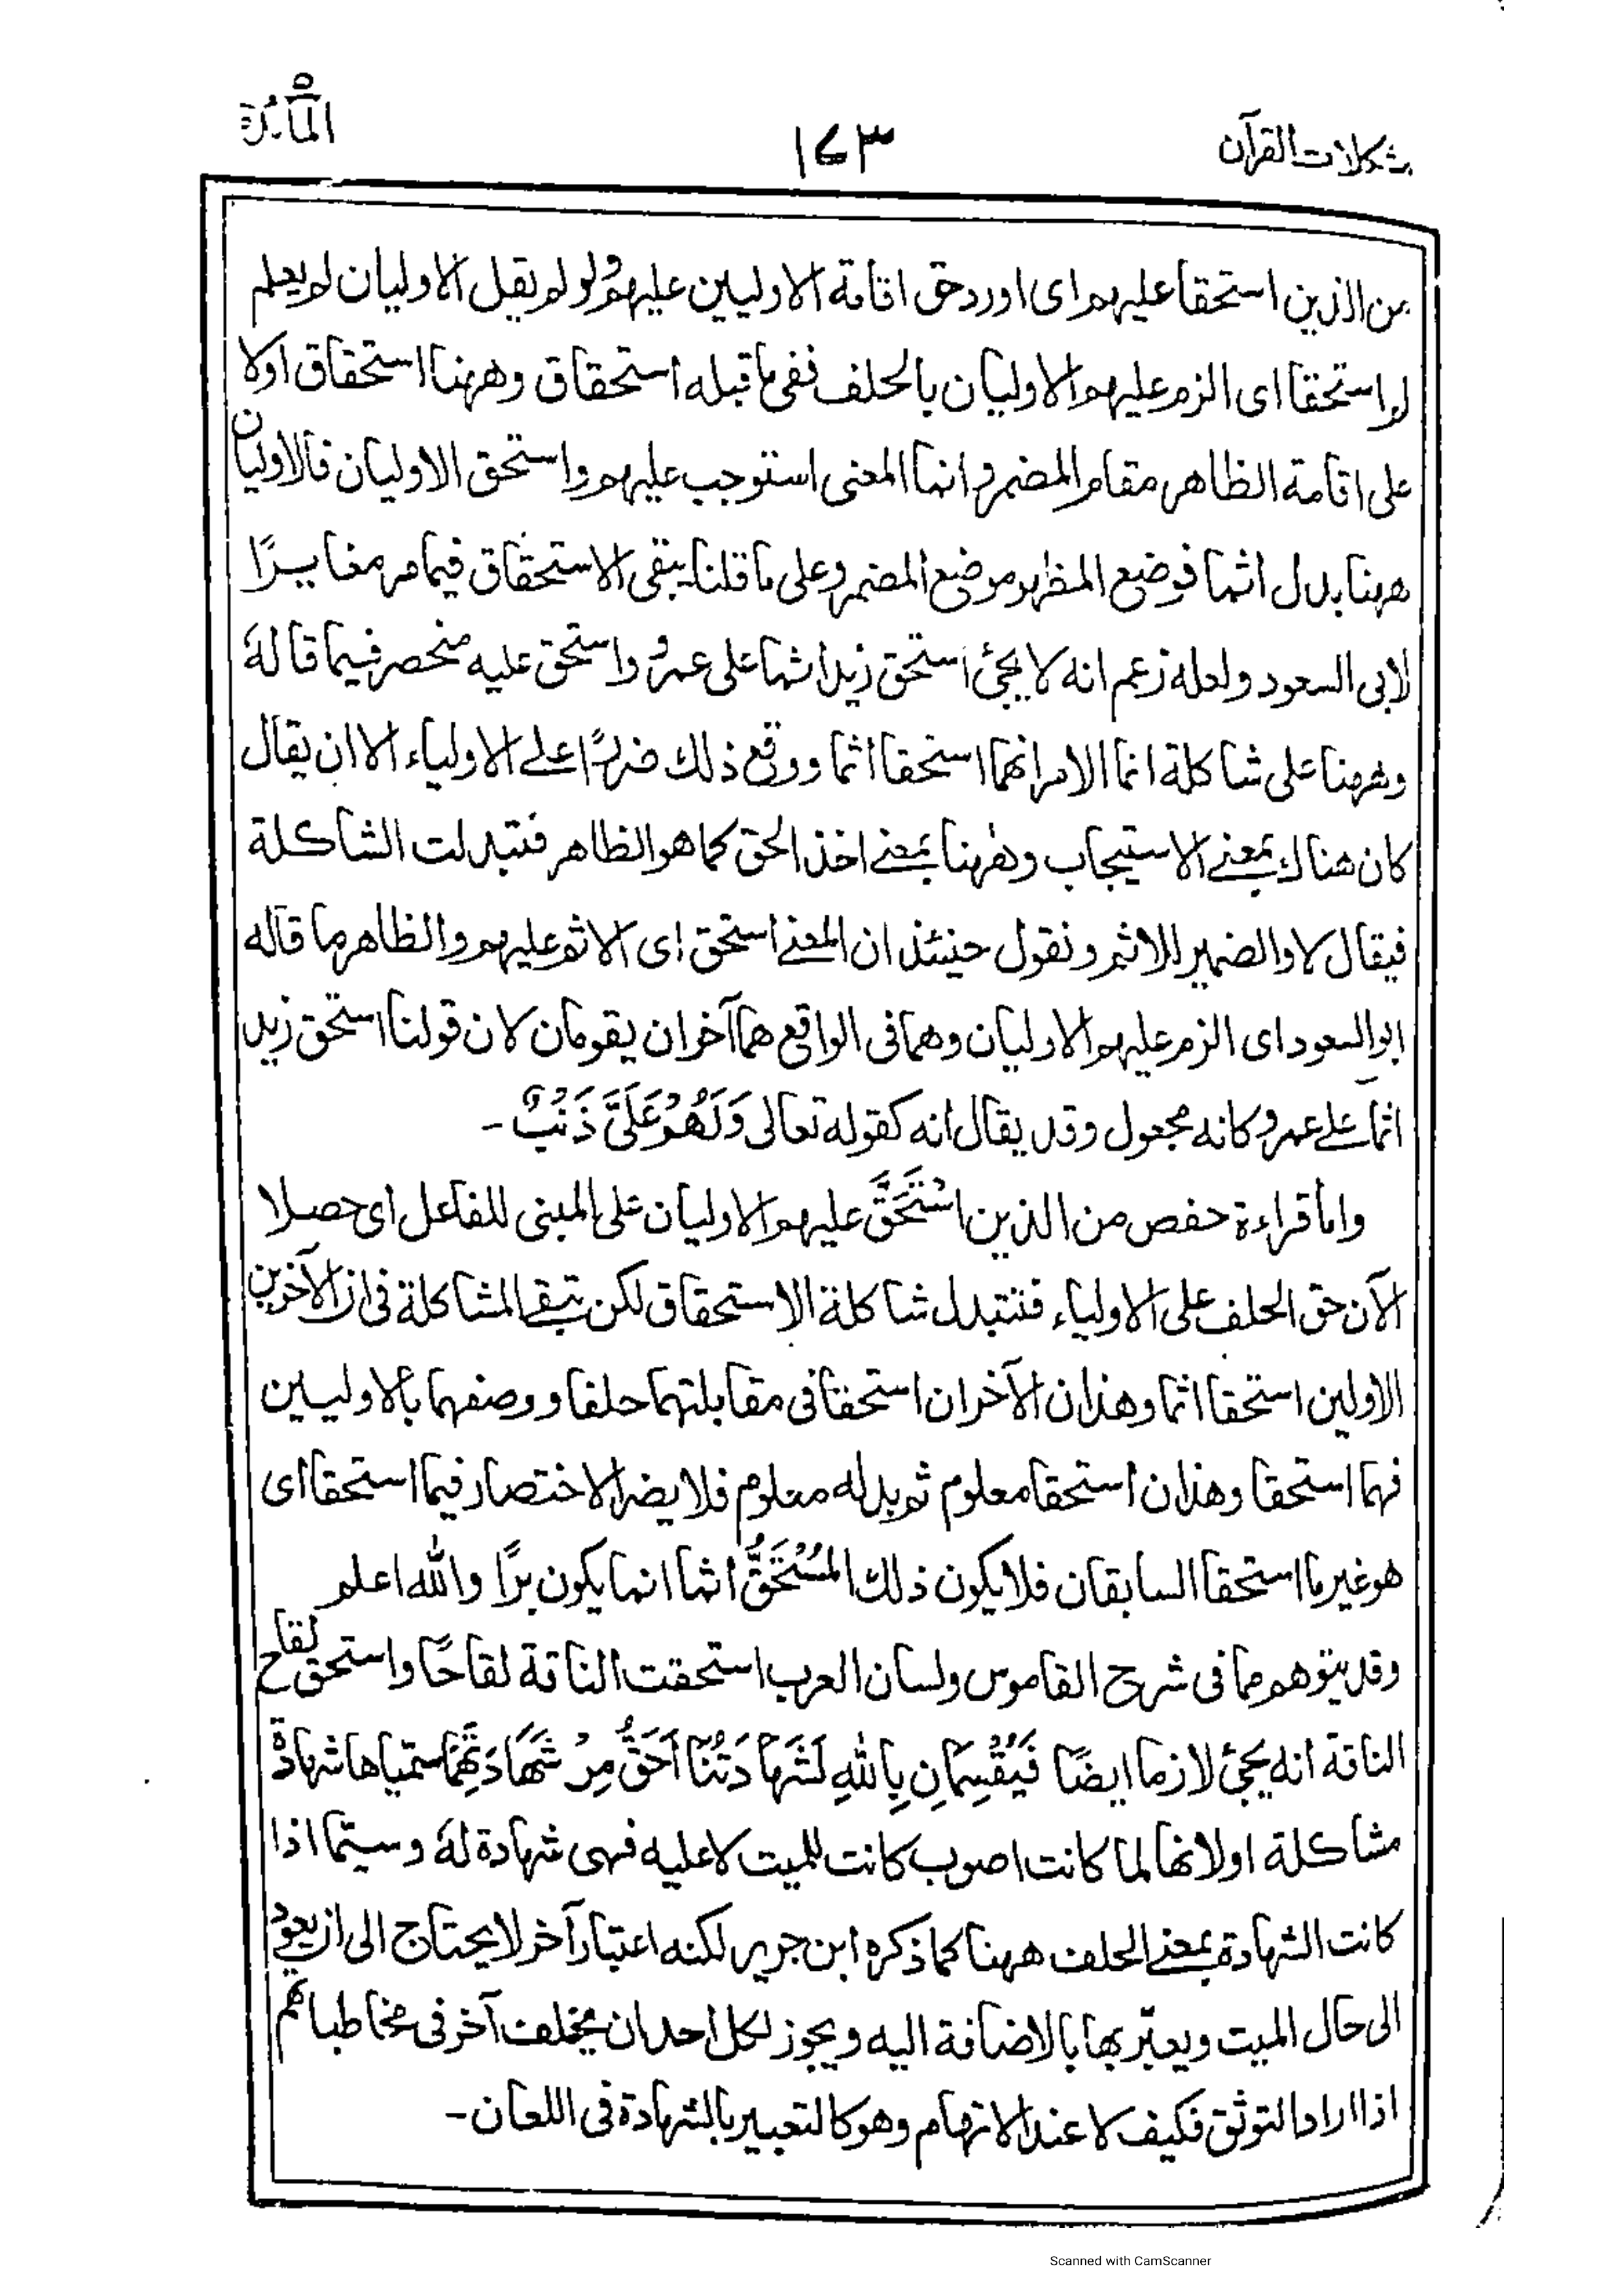 مشكلات القرآن
١٧٣
المائدة
من الذين استحقا عليهم اى اورد حق اقامة الاوليين عليهم ولو لم يقل الاوليان لم يعلم
لم استحقا اى الزم عليهم الاوليان بالحلف ففى ما قبله استحقاق وههنا استحقاق اولا
على اقامة الظاهر مقام المضمر وانما المعنى استوجب عليهم واستحق الاوليان فالاوليان
ههنا بدل اثما فوضع المظهر موضع المضمر وعلى ما قلنا يبقى الاستحقاق فيما مر مغايرًا
لابى السعود ولعله زعم انه لا يجئ استحق زيد اثما على عمرو واستحق عليه منحصر فيما قالهٗ
وههنا على شاكلة انما الامر انهما استحقا اثما ووقع ذلك ضررًا على الاولياء الا ان يقال
كان هناك بمعنے الاستيجاب وههنا بمعنے اخذ الحق كما هو الظاهر فتبدلت الشاكلة
فيقال لا والضمير للاثم ونقول حينئذ ان المعنے استحق اى الاثم عليهم والظاهر ما قاله
ابو السعود اى الزم عليهم الاوليان وهما فى الواقع هما آخران يقومان لان قولنا استحق زيد
اثما علے عمرو كانه مجعول وقد يقال انه كقوله تعالى وَلَهُمْ عَلَىَّ ذَنْبٌ ـ
واما قراءة حفص من الذين اسْتَحَقَّ عليهم الاوليان على المبنى للفاعل اى حصلا
الآن حق الحلف على الاولياء فتتبدل شاكلة الاستحقاق لكن تبقے المشاكلة فى ان الآخرين
الاولين استحقا اثما وهذان الآخران استحقا فى مقابلتهما حلفا ووصفهما بالاوليين
فهما استحقا وهذان استحقا معلوم ثم بدله معلوم فلا يضر الاختصار فيما استحقا اى
هو غير ما استحقا السابقان فلا يكون ذلك المُسْتَحَقُّ اثما انما يكون برًّا والله اعلم
وقد يتوهم مما فى شرح القاموس ولسان العرب استحقت الناقة لقاحًا واستحق لقاح
الناقة انه يجئ لازما ايضًا فَيُقْسِمَانِ بِاللهِ لَشَهَادَتُنَا اَحَقُّ مِنْ شَهَادَتِهِمَا ستمياها شهادةً
مشاكلة اولانها لما كانت اصوب كانت للميت لا عليه فهى شهادة لهٗ وسيّما اذا
كانت الشهادة بمعنے الحلف ههنا كما ذكره ابن جرير لكنه اعتبار آخر لا يحتاج الى ان يعود
الى حال الميت ويعبّر بها بالاضافة اليه ويجوز لكل احد ان يحلف آخر فى مخاطباتهم
اذا اراد التوثق فكيف لا عند الاتهام وهو كالتعبير بالشهادة فى اللعان ـ
Scanned with CamScanner